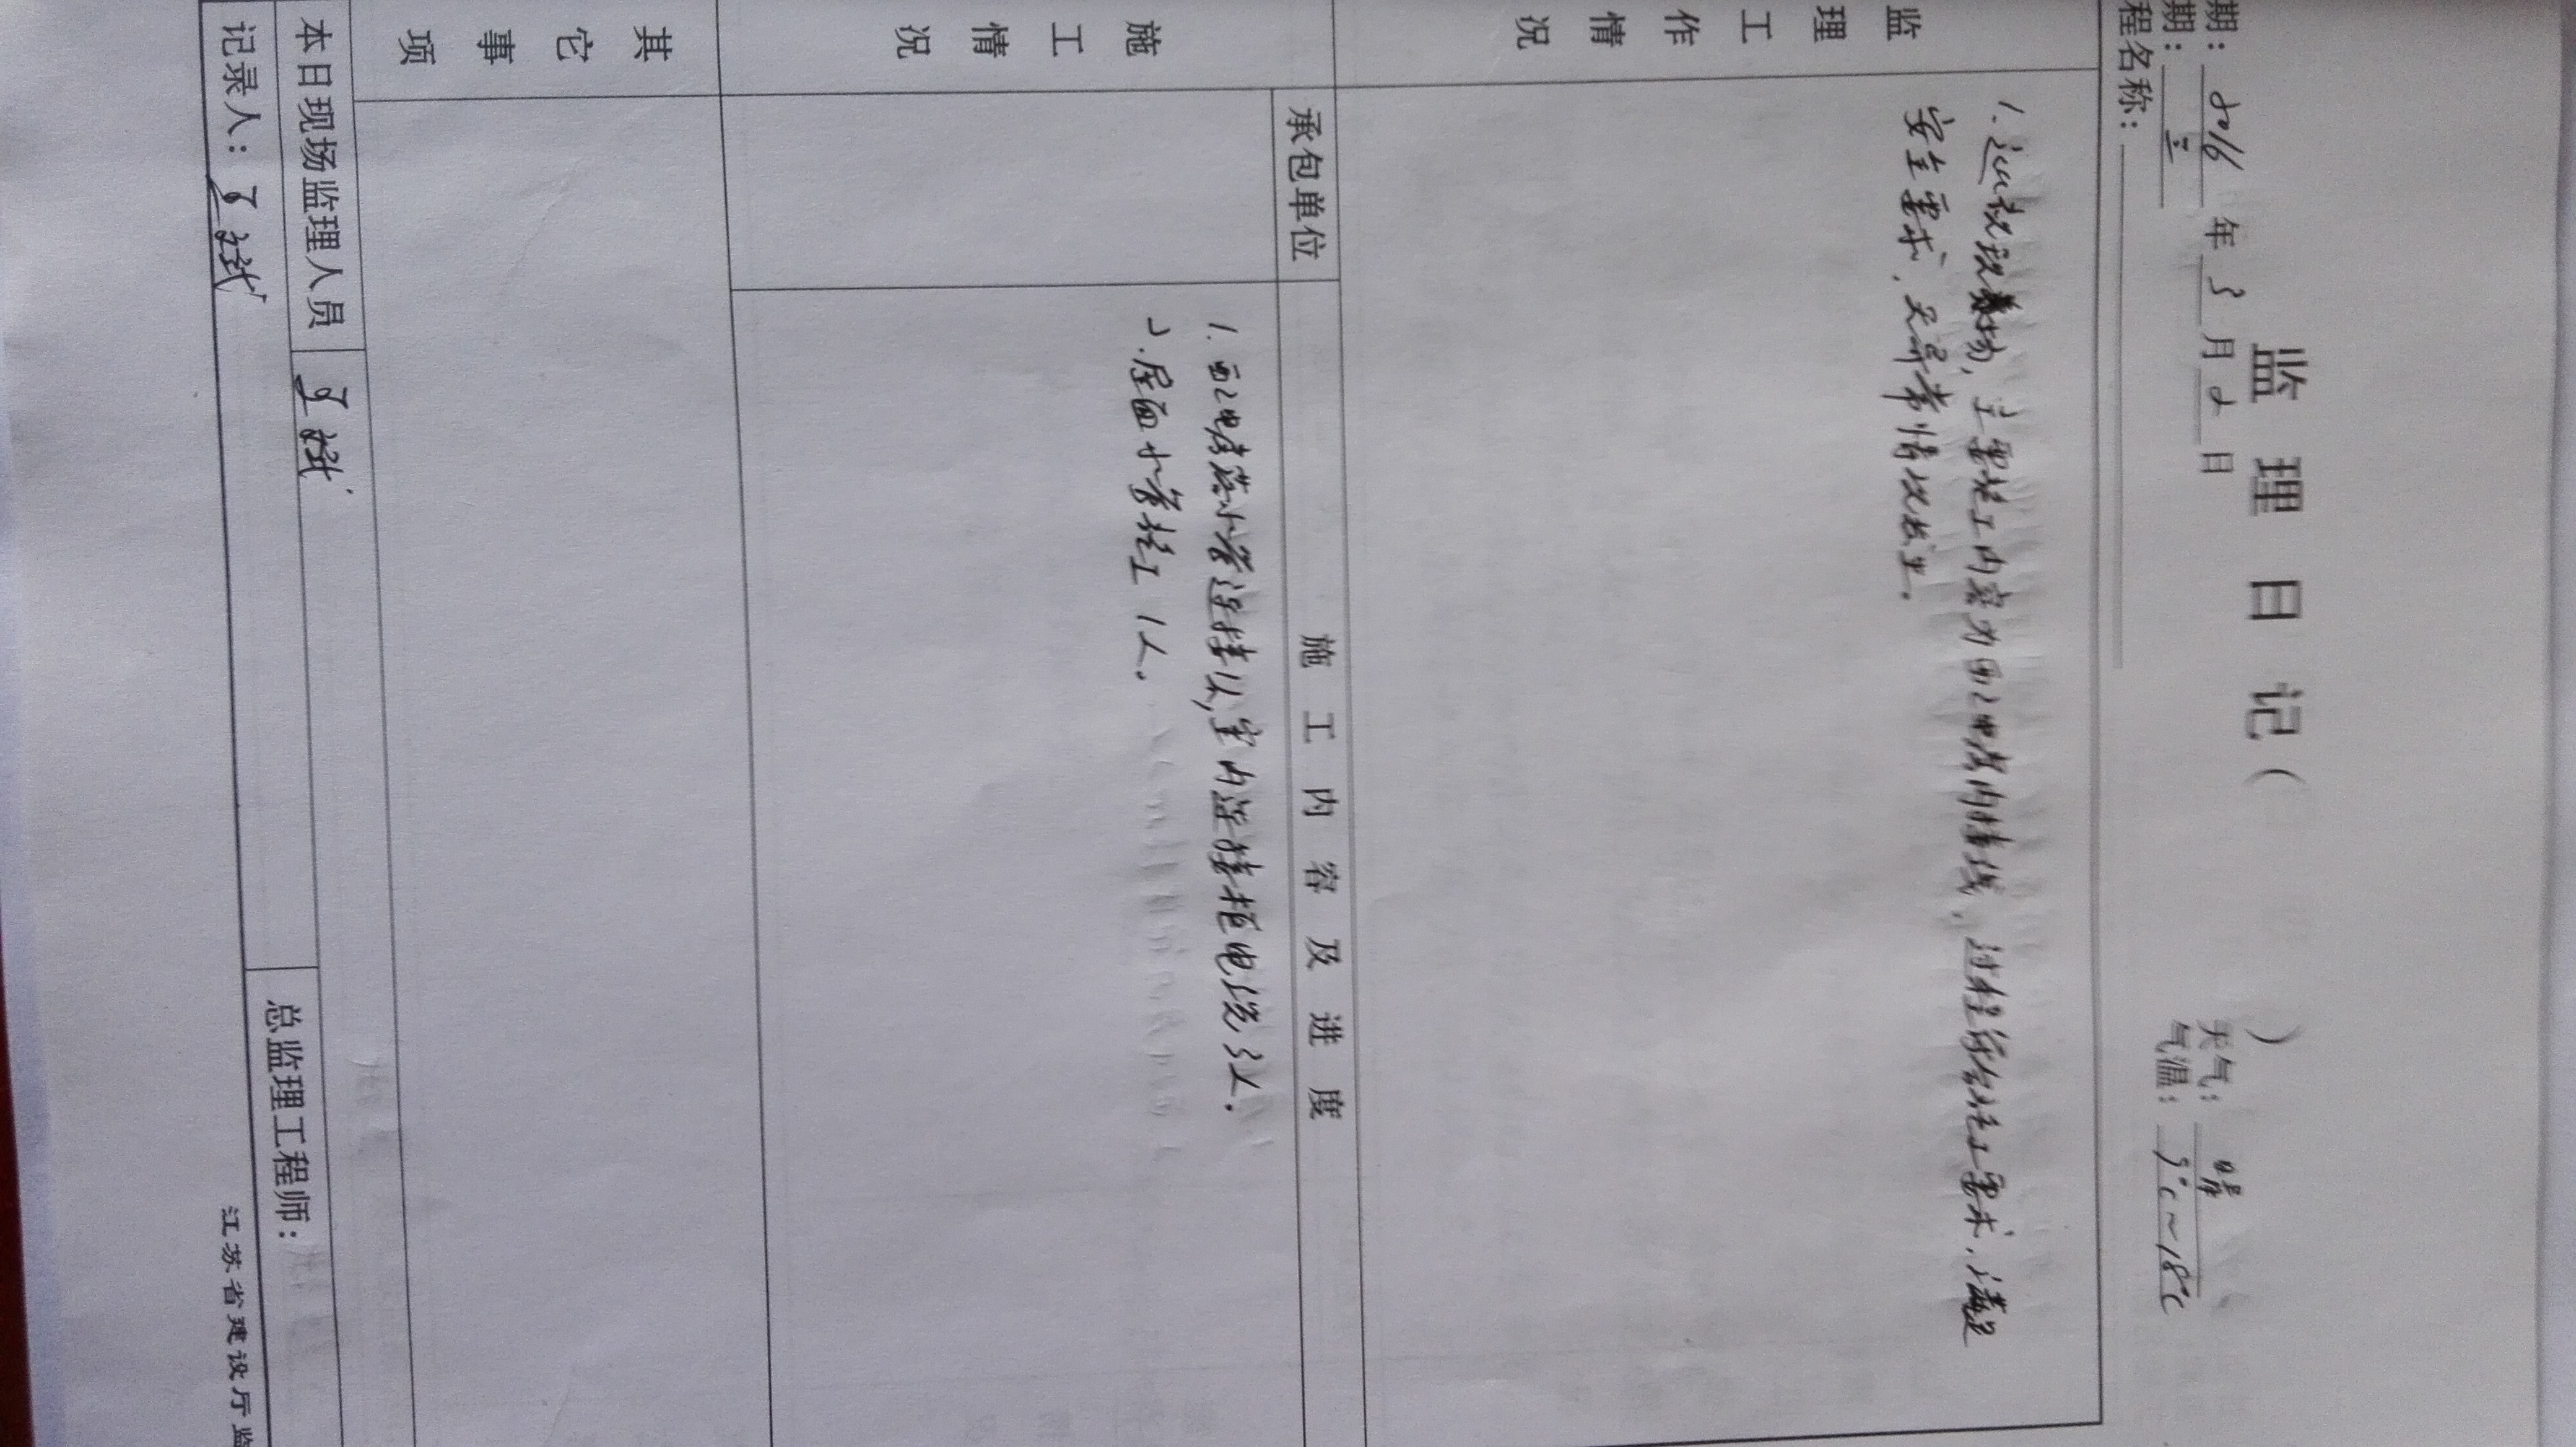 监理日记（ ）
期：2016年3月2日 天气：晴
期：三 气温：9℃~18℃
程名称：
监理工作情况
1. 巡视现场，主要施工内容为西2#楼内穿线，过程符合施工要求，满足
安全要求，无异常情况发生。
施工情况
承包单位 施工内容及进度
1. 西2#楼落水管连接1人，室内连接桩电缆3人。
2. 屋面水管施工1人。
其它事项
本日现场监理人员
记录人： 总监理工程师：
江苏省建设厅监